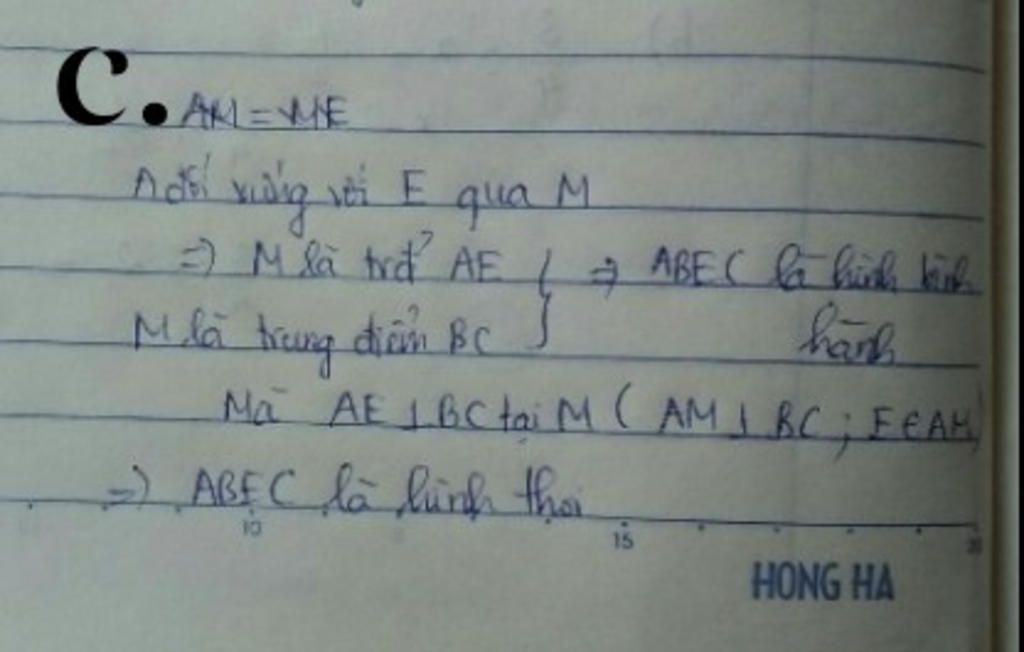 C. AM = ME
A đối xứng với E qua M
=> M là trđ' AE } => ABEC là hình bình hành
M là trung điểm BC
Mà AE ⊥ BC tại M ( AM ⊥ BC ; E ∈ AM )
=> ABEC là hình thoi
10 15 20
HONG HA